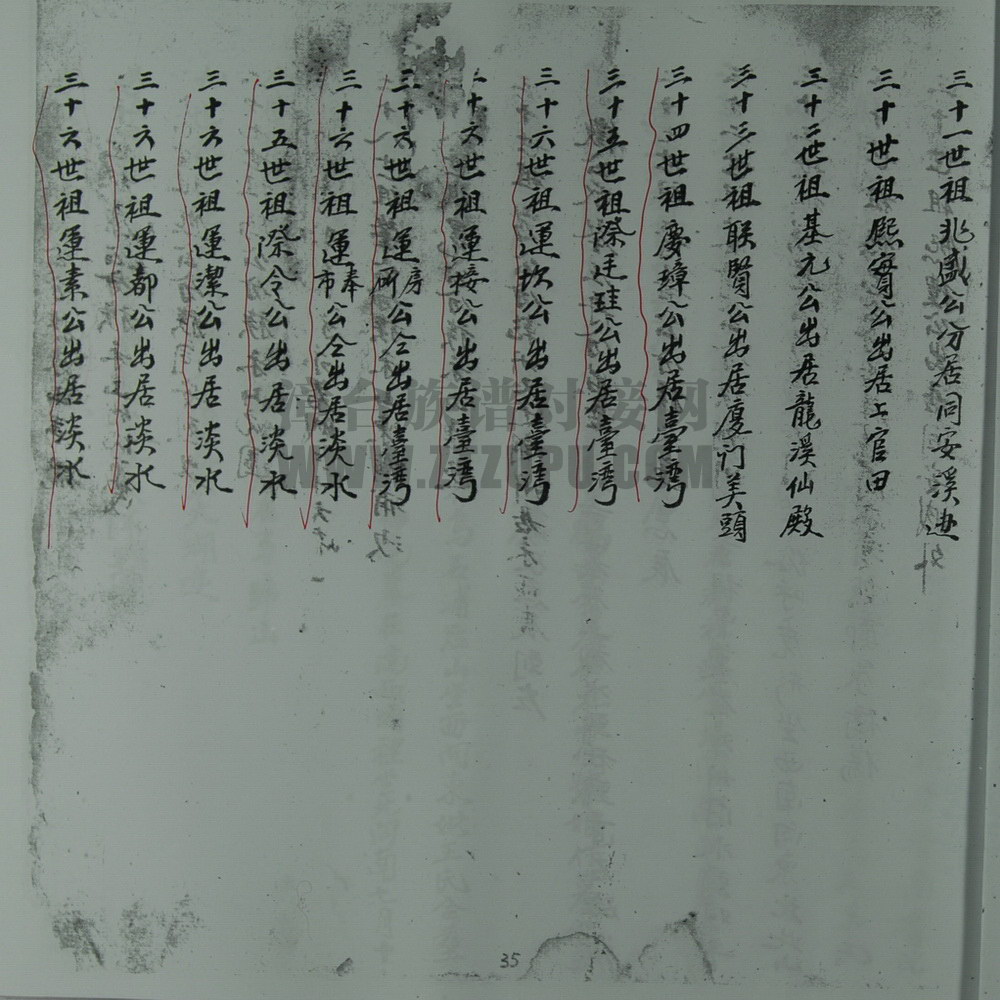 三十一世祖兆盛公分居同安溪边
三十世祖熙實公出居上官田
三十二世祖基元公出居龍溪仙殿
三十三世祖联賢公出居厦门美頭
三十四世祖慶璋公出居臺灣
三十五世祖際廷珪公出居臺灣
三十六世祖運坎公出居臺灣
三十六世祖運接公出居臺灣
三十六世祖運房所公仝出居臺灣
三十六世祖運奉市公仝出居淡水
三十五世祖際令公出居淡水
三十六世祖運潔公出居淡水
三十六世祖運都公出居淡水
三十六世祖運素公出居淡水
漳台族谱对接网
WWW.ZTZUPU.COM
35